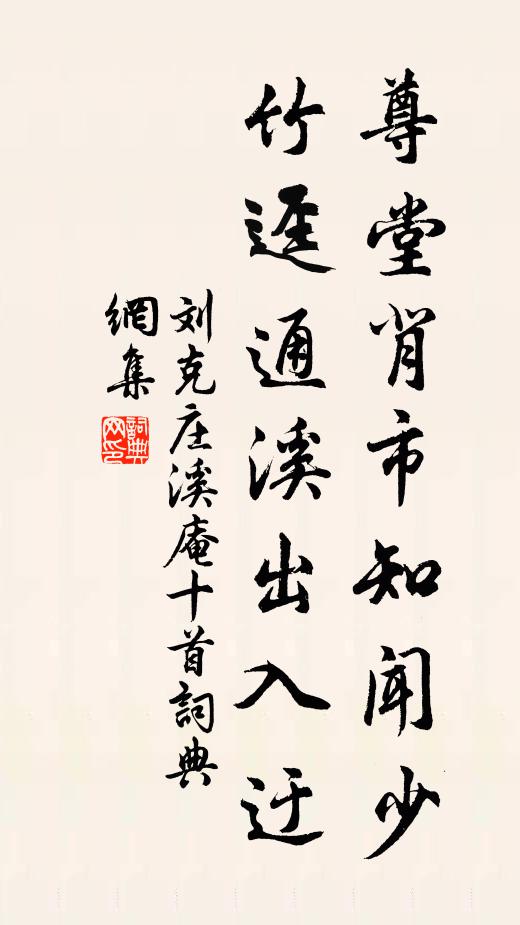 尊堂背市知聞少
竹逕通溪出入迂
刘克庄溪庵十首詞典
網集
詞典
网印